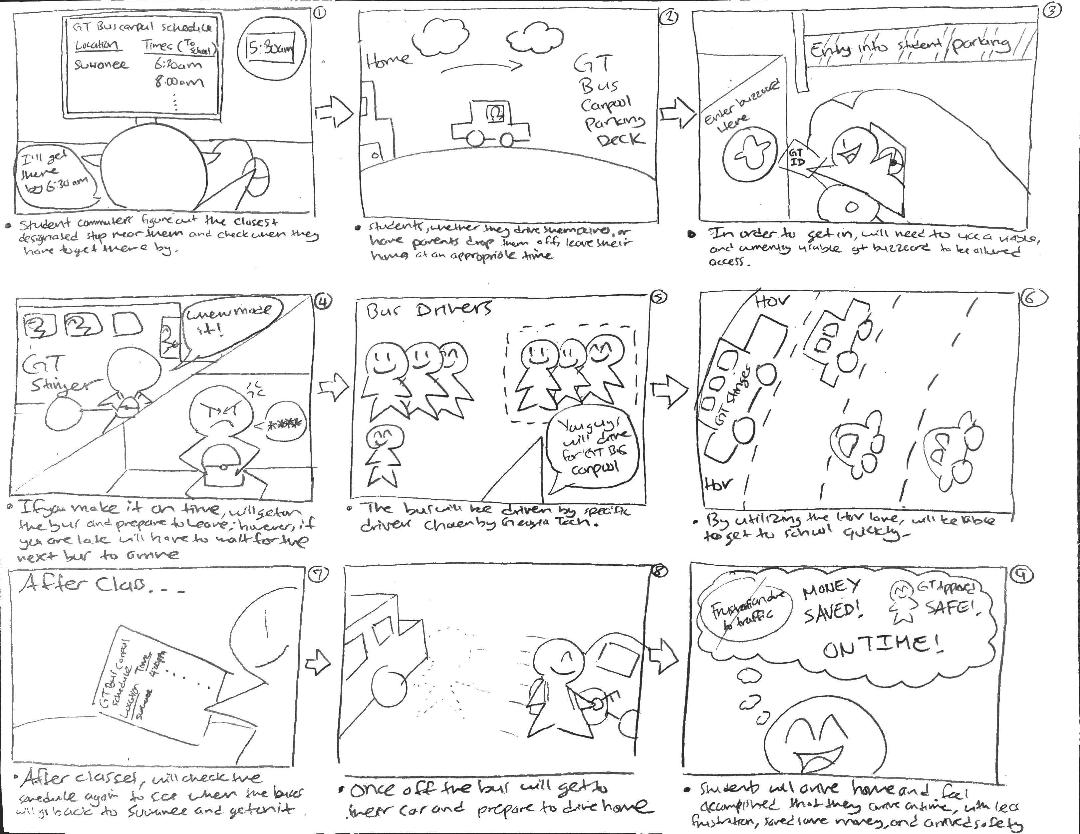 ①
GT Bus carpool schedule
Location Times (To School)
Suwanee 6:30am
8:00am
5:30am
I'll get
there
by 6:30am
• Student commuters figure out the closest
designated stop near them and check when they
have to get there by.
②
Home
GT
Bus
Carpool
Parking
Deck
• students, whether they drive themselves, or
have parents drop them off, leave their
homes at an appropriate time
③
Entry into student parking
Enter buzzcard
Here
GT
ID
• In order to get in, will need to use a viable,
and currently viable gt buzzcard to be allowed
access.
④
whew made
it!
GT
Stinger
• If you make it on time, will get on
the bus and prepare to leave; however, if
you are late will have to wait for the
next bus to arrive
⑤
Bus Drivers
You guys
will drive
for GT Bus
carpool
• The bus will be driven by specific
driver chosen by Georgia Tech.
⑥
Hov
GT Stinger
Hov
• By utilizing the Hov lane, will be able
to get to school quickly.
⑦
After Class...
GT Bus Carpool
Schedule
Location Times
Suwanee 4:00pm
• After classes, will check the
schedule again to see when the buses
will go back to Suwanee and get on it
⑧
• Once off the bus will get to
their car and prepare to drive home
⑨
Frustration due
to traffic
MONEY
SAVED!
GT Approved
SAFE!
ON TIME!
• Students will arrive home and feel
accomplished that they arrive on time, with less
frustration, saved some money, and arrived safely